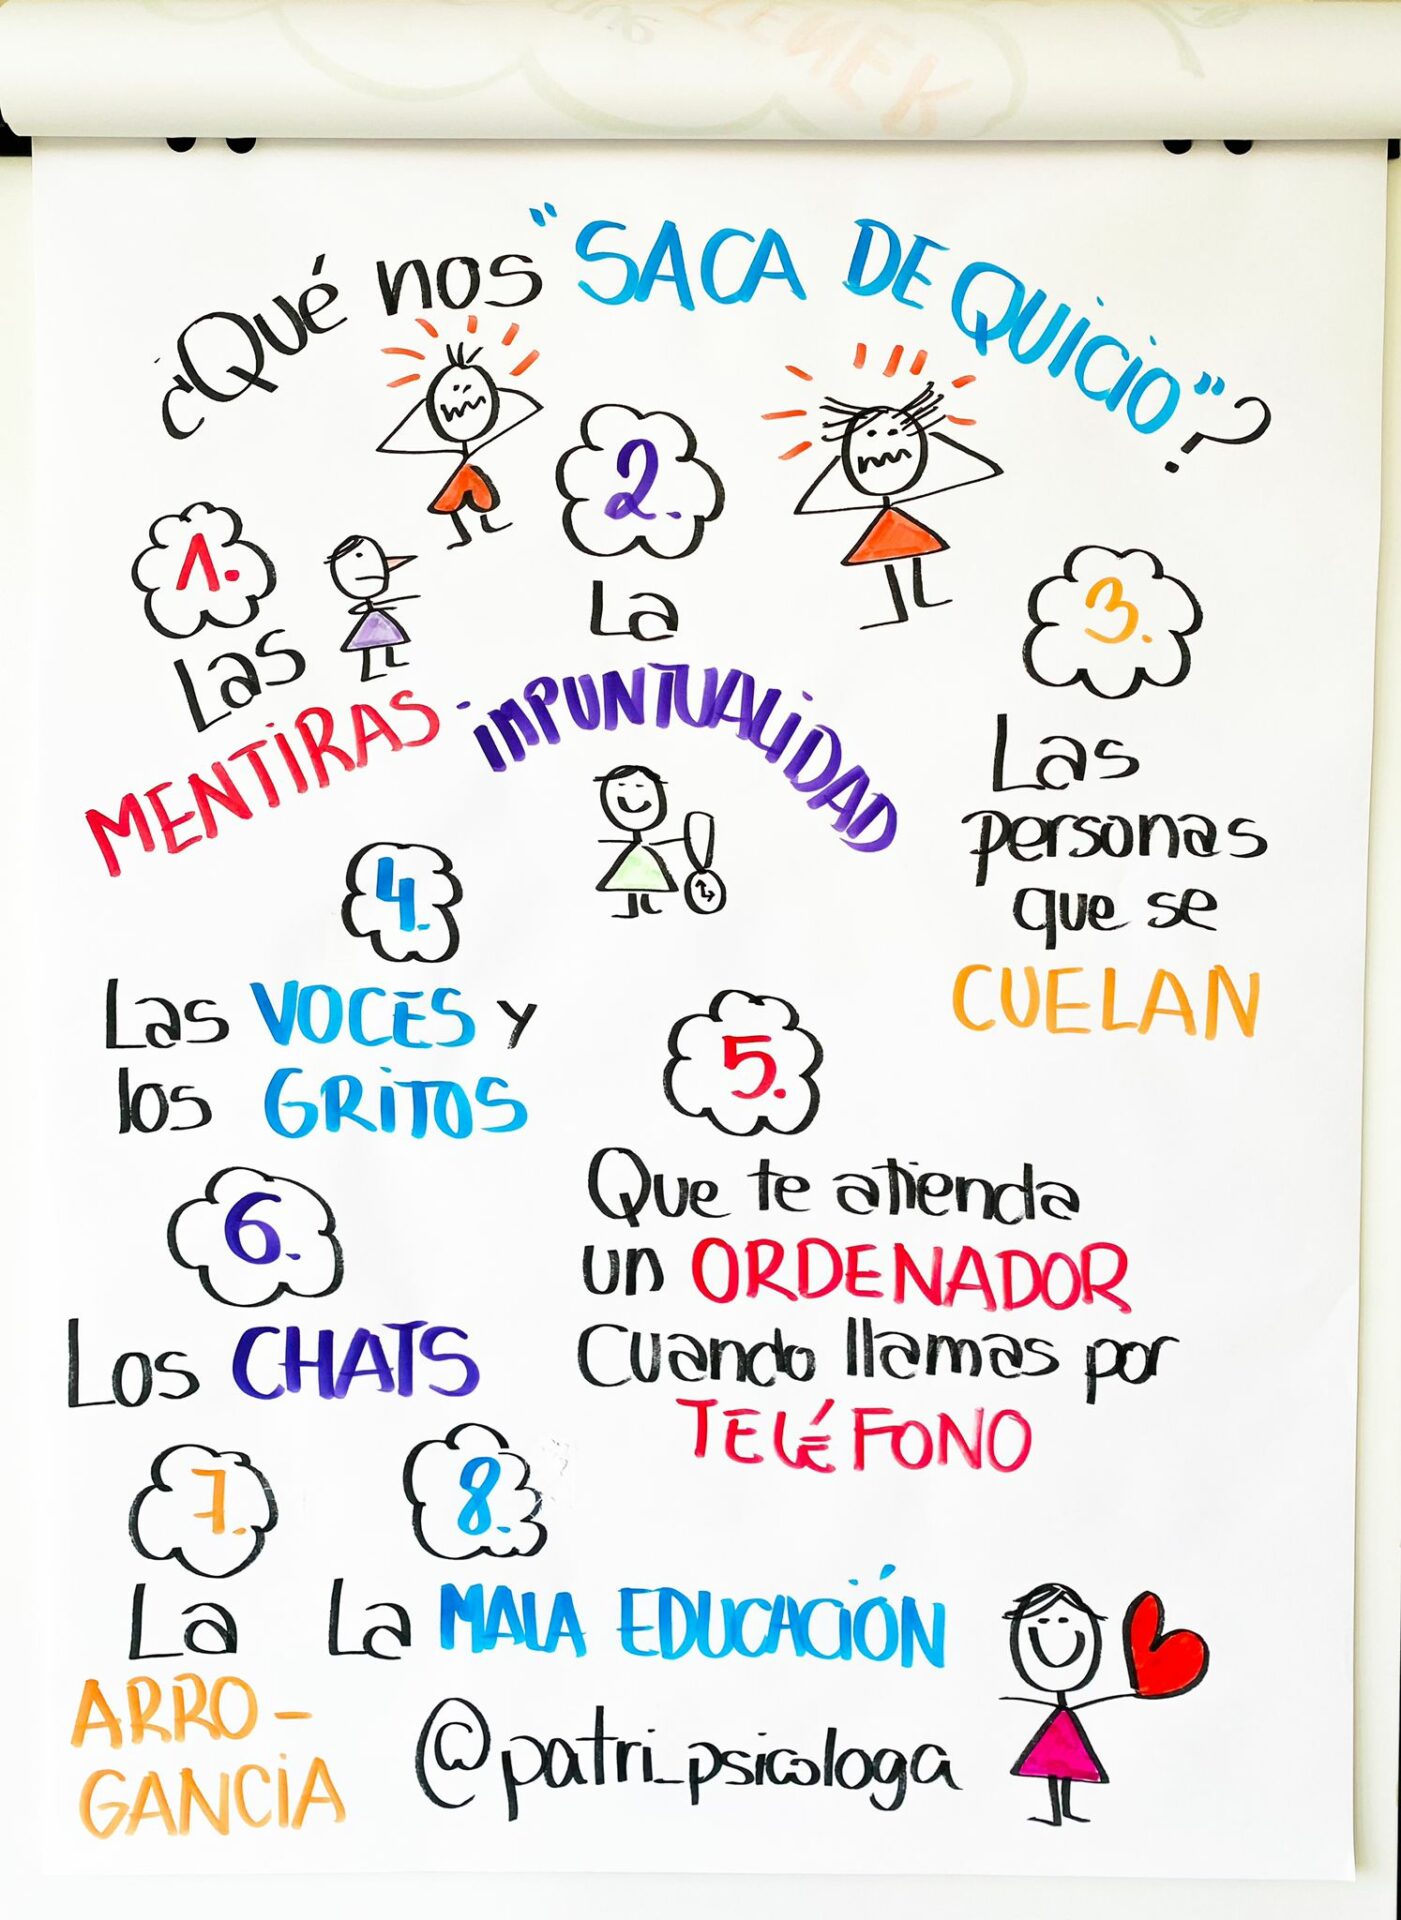 ¿Qué nos "SACA DE QUICIO"?
1.
Las
MENTIRAS
2.
La
IMPUNTUALIDAD
3.
Las
personas
que se
CUELAN
4.
Las VOCES y
los GRITOS
5.
Que te atienda
un ORDENADOR
Cuando llamas por
TELÉFONO
6.
Los CHATS
7.
La
ARRO-
GANCIA
8.
La MALA EDUCACIÓN
@patri_psicologa